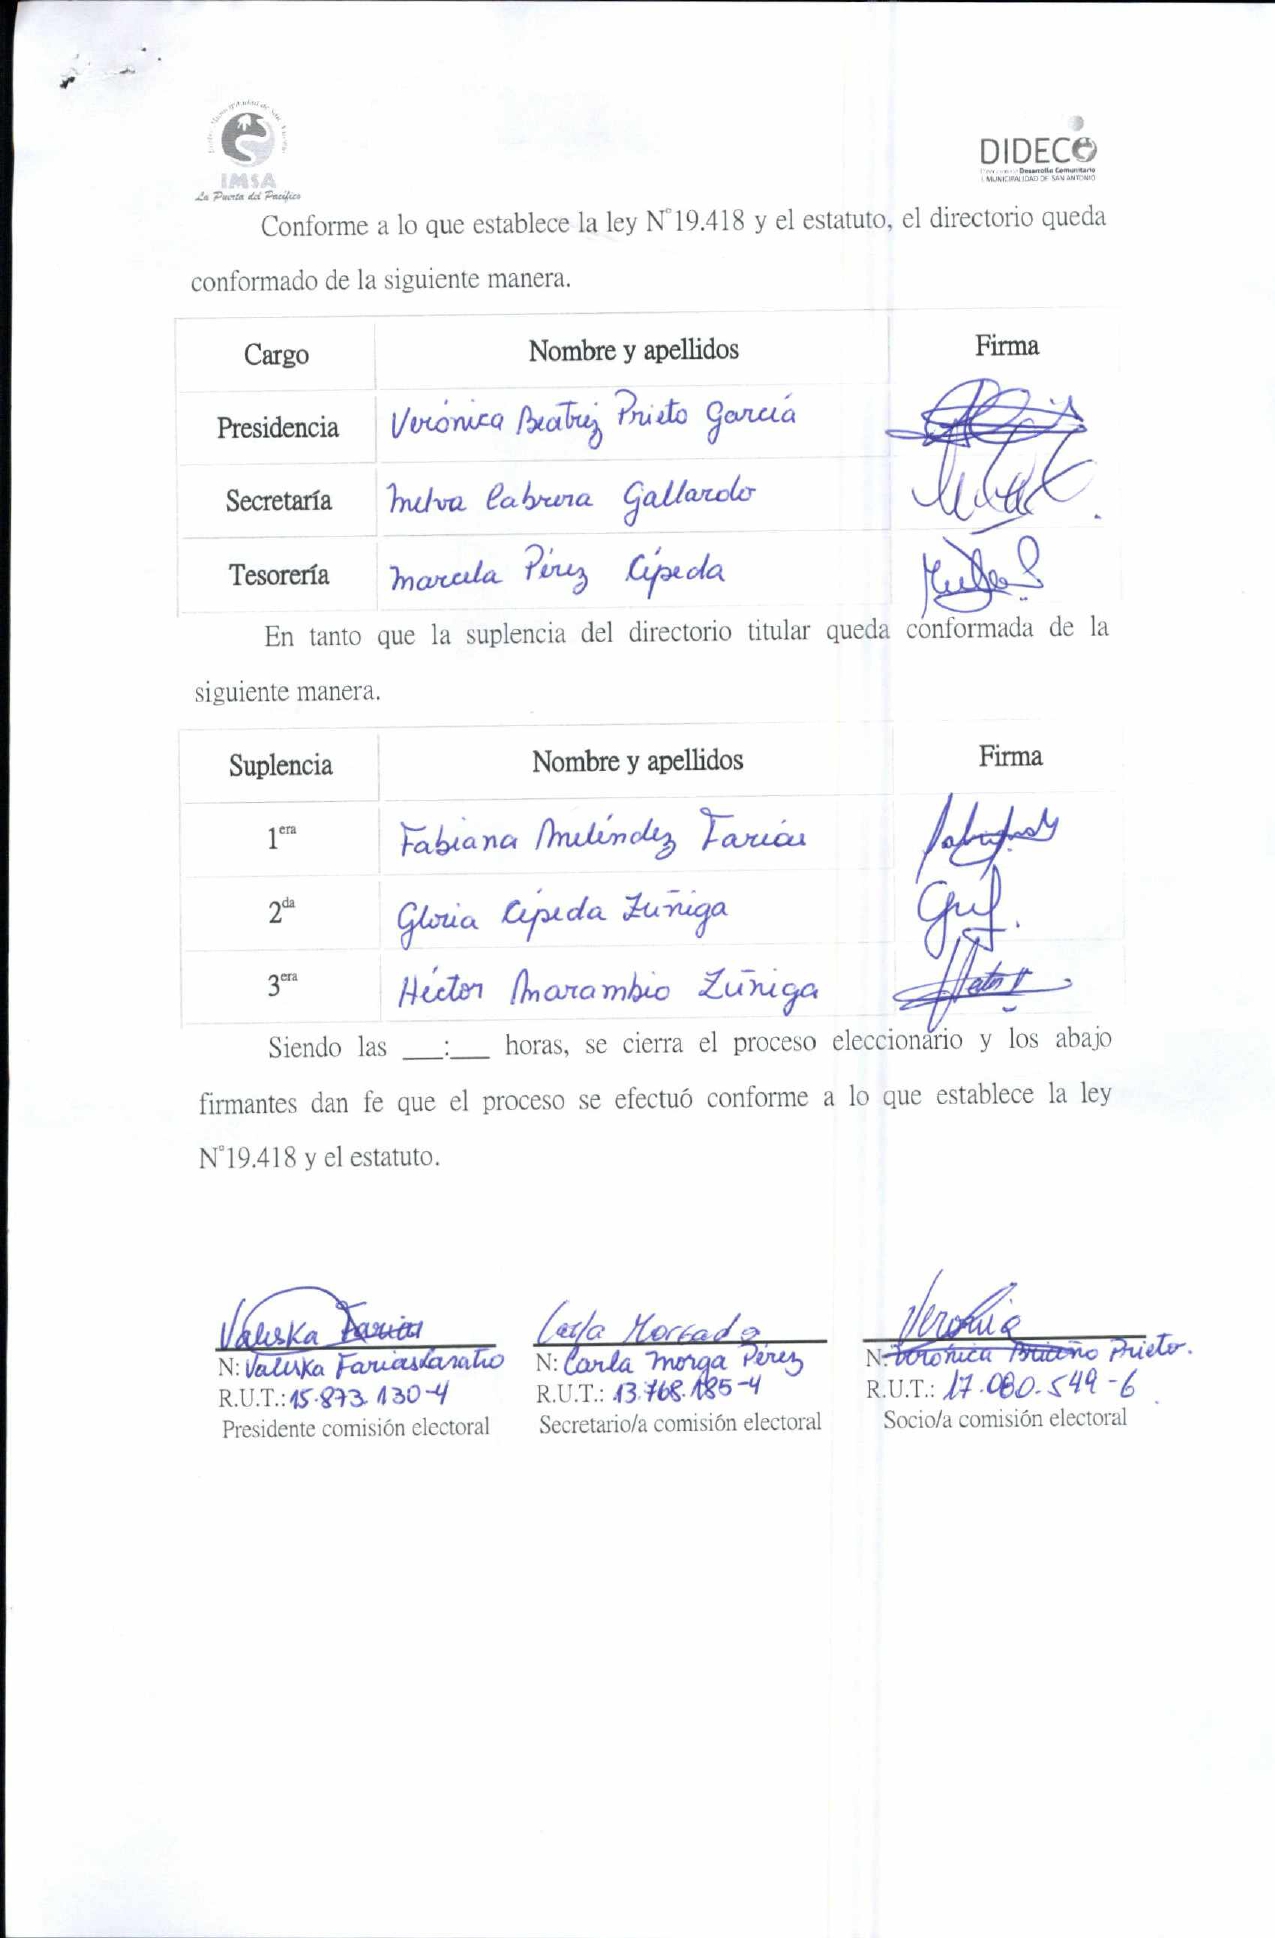 IMSA
La Puerta del Pacífico
DIDECO
Desarrollo Comunitario
I. MUNICIPALIDAD DE SAN ANTONIO
Conforme a lo que establece la ley N°19.418 y el estatuto, el directorio queda
conformado de la siguiente manera.
Cargo Nombre y apellidos Firma
Presidencia Verónica Beatriz Prieto García
Secretaría Melva Cabrera Gallardo
Tesorería Marcela Pérez Cépeda
En tanto que la suplencia del directorio titular queda conformada de la
siguiente manera.
Suplencia Nombre y apellidos Firma
1era Fabiana Meléndez Farías
2da Gloria Cépeda Zúñiga
3era Héctor Marambio Zúñiga
Siendo las ___:___ horas, se cierra el proceso eleccionario y los abajo
firmantes dan fe que el proceso se efectuó conforme a lo que establece la ley
N°19.418 y el estatuto.
Valeska Farias Carla Verónica
N: Valeska Farias N: Carla Morga Pérez N: Verónica Briceño Prieto.
R.U.T.: 15.873.130-4 R.U.T.: 13.768.185-4 R.U.T.: 17.080.549-6
Presidente comisión electoral Secretario/a comisión electoral Socio/a comisión electoral